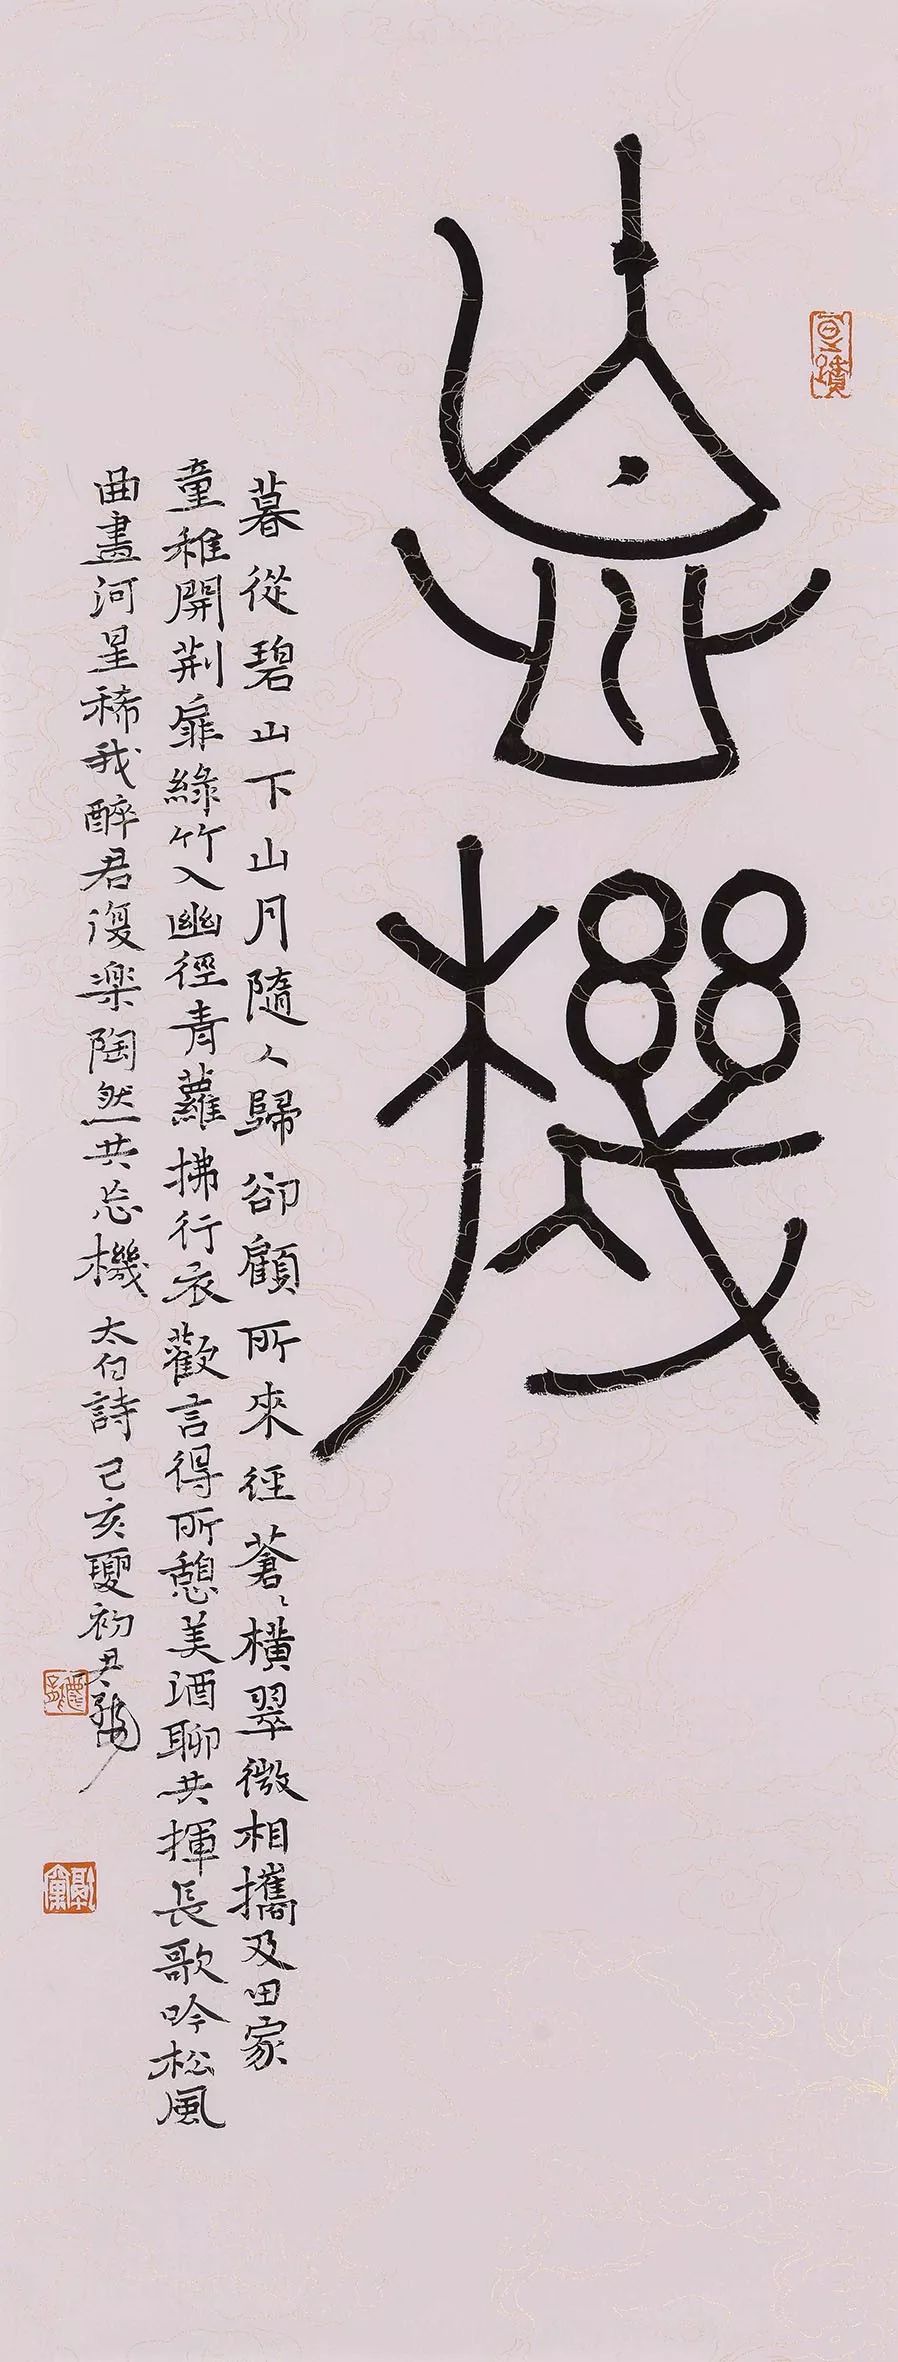 忘機
暮從碧山下山月隨人歸卻顧所來徑蒼〻橫翠微相攜及田家
童稚開荊扉綠竹入幽徑青蘿拂行衣歡言得所憩美酒聊共揮長歌吟松風
曲盡河星稀我醉君復楽陶然共忘機 太白詩 己亥夏初尹